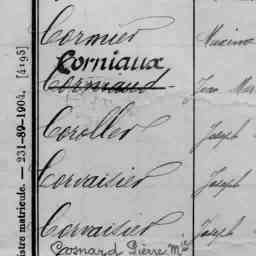 Cormier Maxime
Corniaux
Cormaud Jean Mar
Coroller Joseph
Corvaisier Joseph
Corvaisier Joseph
Cosnard Pierre Mie
istre matricule. — 231-89-1904. [4195]